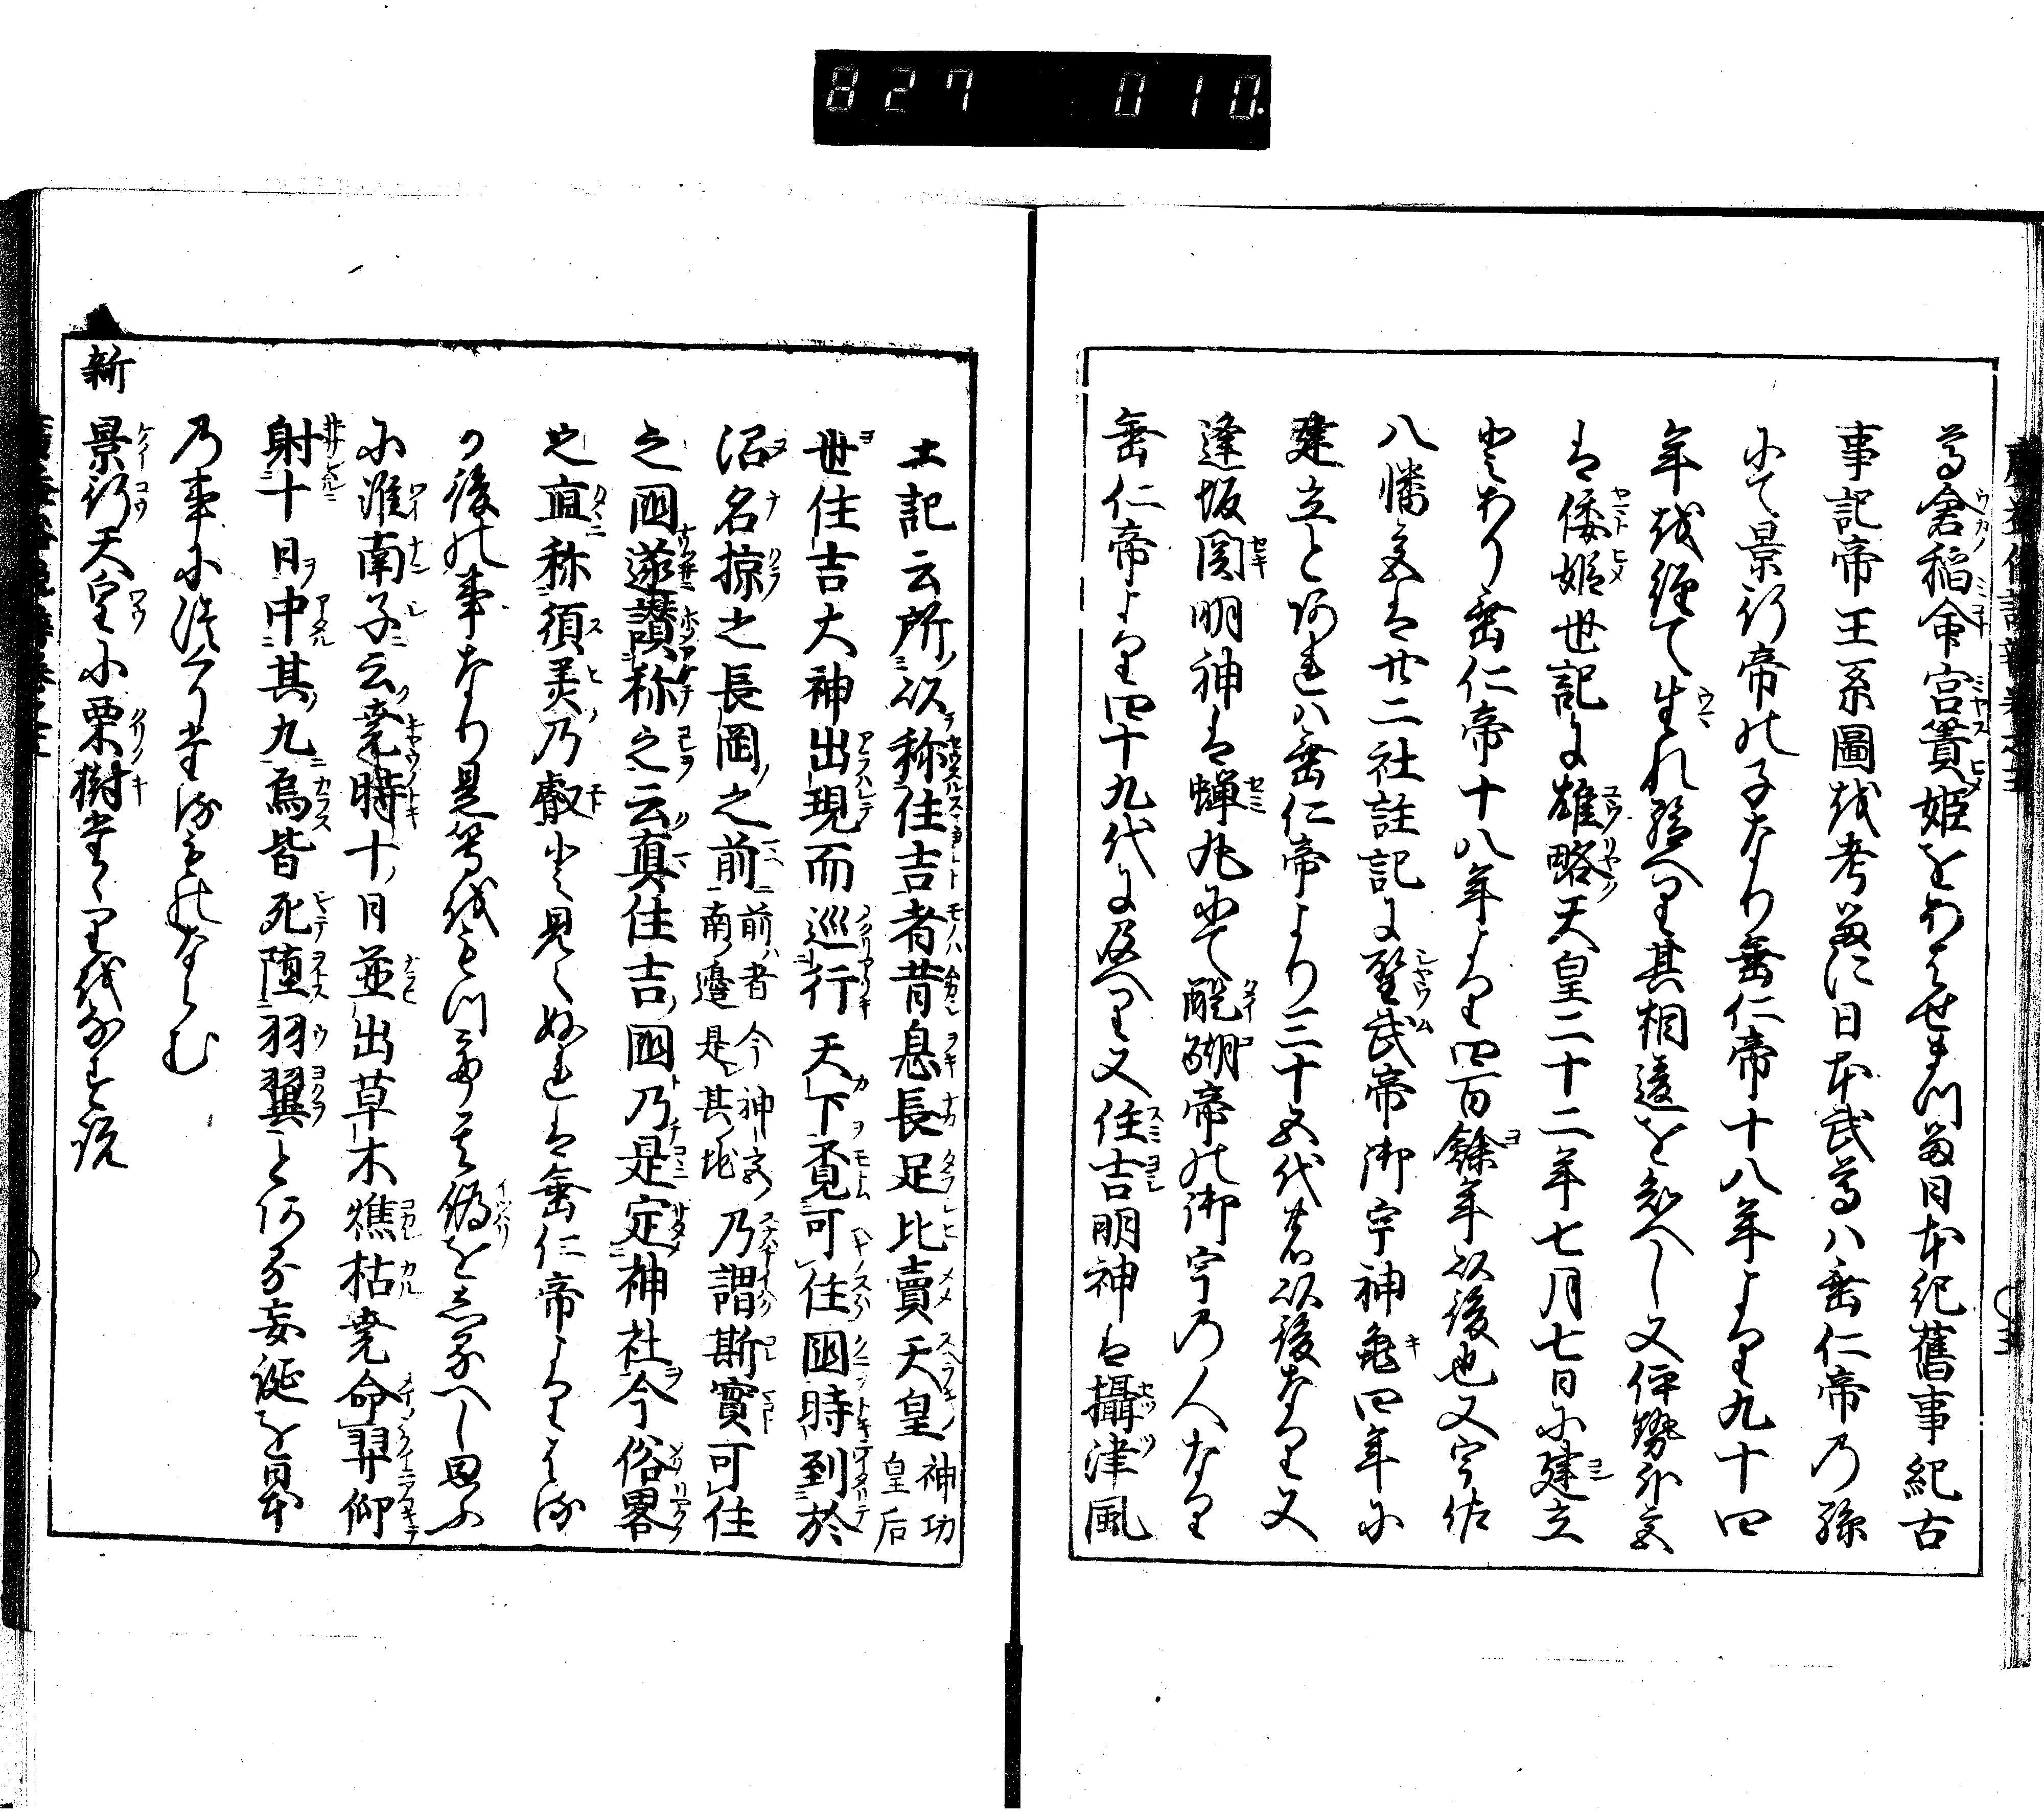 827 010
尊倉稲命宮簀姫をわらせまつる日本紀舊事紀古
事記帝王系圖越考るに日本武尊ハ垂仁帝乃孫
にて景行帝の子なり垂仁帝十八年より九十四
年越経て生れ給へり其相違を知へし又伊勢外宮
は倭姫世記に雄略天皇二十二年七月七日に建立
とあり垂仁帝十八年より四百餘年以後也又宇佐
八幡宮は廿二社註記に聖武帝御宇神亀四年に
建立とあれハ垂仁帝より三十五代以後なり又
逢坂関明神は蝉丸にて醍醐帝の御宇乃人なり
垂仁帝より四十九代に及へり又住吉明神は攝津風
土記云所以称住吉者昔息長足比賣天皇神功皇后
世住吉大神出現而巡行天下覓可住國時到於
沼名掠之長岡之前前者今神宮南邊是其地乃謂斯實可住
之國遂讃称之云真住吉國乃是定神社今俗畧
之直称須美乃叡と見えぬれは垂仁帝よりはる
か後の事なり是等越もつて其偽を知るへし思ふ
に淮南子云尭時十月並出草木燋枯尭命羿仰
射十月中其九烏皆死堕羽翼とある妄誕を日本
乃事に作りたるものならむ
新 景行天皇小栗樹たゝり越なす説